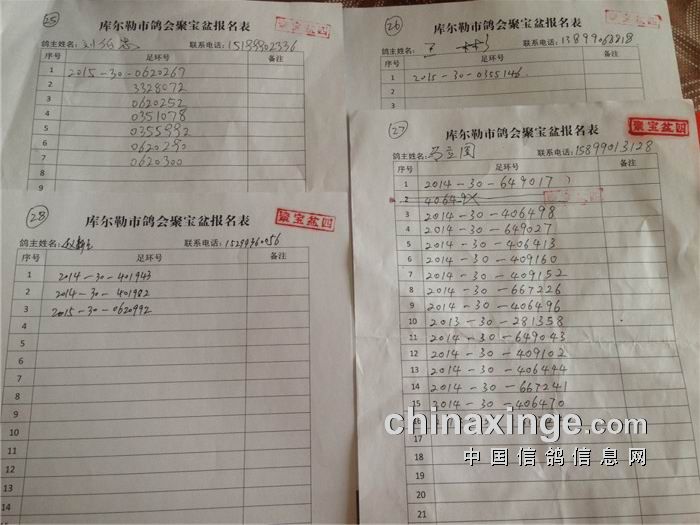 25
库尔勒市鸽会聚宝盆报名表
鸽主姓名: 联系电话:15199902336
序号 足环号 备注
1 2015-30-0620267
2 3328072
3 0620252
4 0351078
5 0355992
6 0620290
7 0620300
26
库尔勒市鸽会聚宝盆报名表
鸽主姓名: 联系电话:13899063818
序号 足环号 备注
1 2015-30-0355146
2
3
27
库尔勒市鸽会聚宝盆报名表
聚宝盆四
鸽主姓名: 联系电话:15899013128
序号 足环号 备注
1 2014-30-649017
2
3 2014-30-406498
4 2014-30-649027
5 2014-30-406413
6 2014-30-409160
7 2014-30-409152
8 2014-30-667226
9 2014-30-406496
10 2013-30-281358
11 2014-30-649043
12 2014-30-409102
13 2014-30-406444
14 2014-30-667241
15 2014-30-406470
16
21
28
库尔勒市鸽会聚宝盆报名表
聚宝盆四
鸽主姓名: 联系电话:15299360056
序号 足环号 备注
1 2014-30-401943
2 2014-30-401982
3 2015-30-0620992
4
5
6
7
8
9
10
11
12
13
14
15
chinaxinge.com
中国信鸽信息网